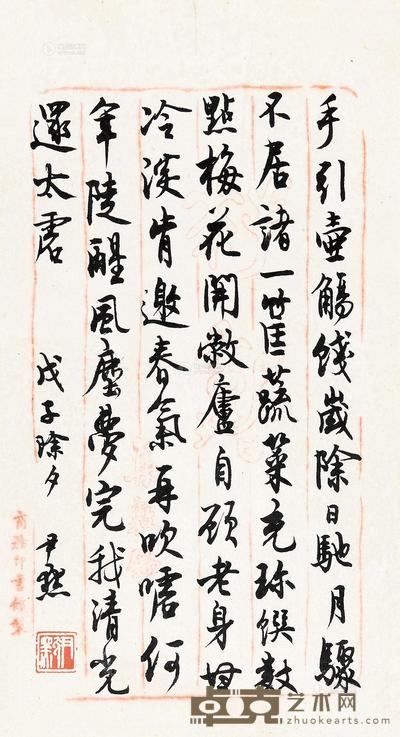 手引壺觴餞歲除日馳月驟
不居諸一筐蔬菜充珍饌數
點梅花開敝廬自顧老身甘
冷淡肯邀春氣再吹噓何
年陡醒風塵夢完我清光
還太虛
戊子除夕 尹默
商務印書館製
卓克艺术网
zhuokearts.com